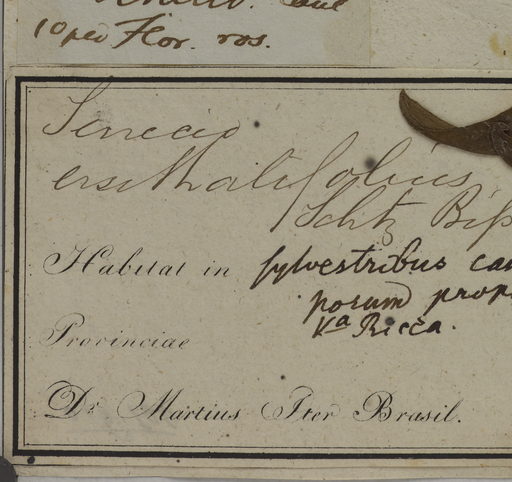 10 ped Flor. ros.
Senecio
erisithalifolius
Schtz Bip
Habitat in sylvestribus cam
porum prope
Va Ricca.
Provinciae
Dr. Martius Iter Brasil.